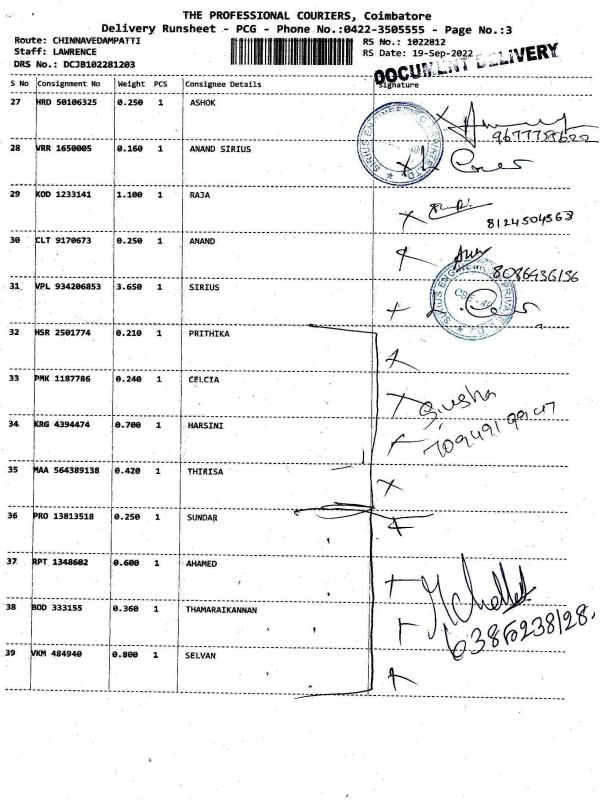 THE PROFESSIONAL COURIERS, Coimbatore
Delivery Runsheet - PCG - Phone No.:0422-3505555 - Page No.:3
Route: CHINNAVEDAMPATTI RS No.: 1022812
Staff: LAWRENCE RS Date: 19-Sep-2022
DRS No.: DCJB102281203 DOCUMENT DELIVERY
S No Consignment No Weight PCS Consignee Details Signature
27 HRD 50106325 0.250 1 ASHOK
28 VRR 1650005 0.160 1 ANAND SIRIUS
29 KOD 1233141 1.100 1 RAJA
8124504563
30 CLT 9170673 0.250 1 ANAND
31 VPL 934206853 3.650 1 SIRIUS
32 HSR 2501774 0.210 1 PRITHIKA
33 PMK 1187786 0.240 1 CELCIA
34 KRG 4394474 0.700 1 HARSINI
35 MAA 564389138 0.420 1 THIRISA
36 PRO 13813518 0.250 1 SUNDAR
37 RPT 1348602 0.600 1 AHAMED
38 BOD 333155 0.360 1 THAMARAIKANNAN
39 VKM 484940 0.800 1 SELVAN